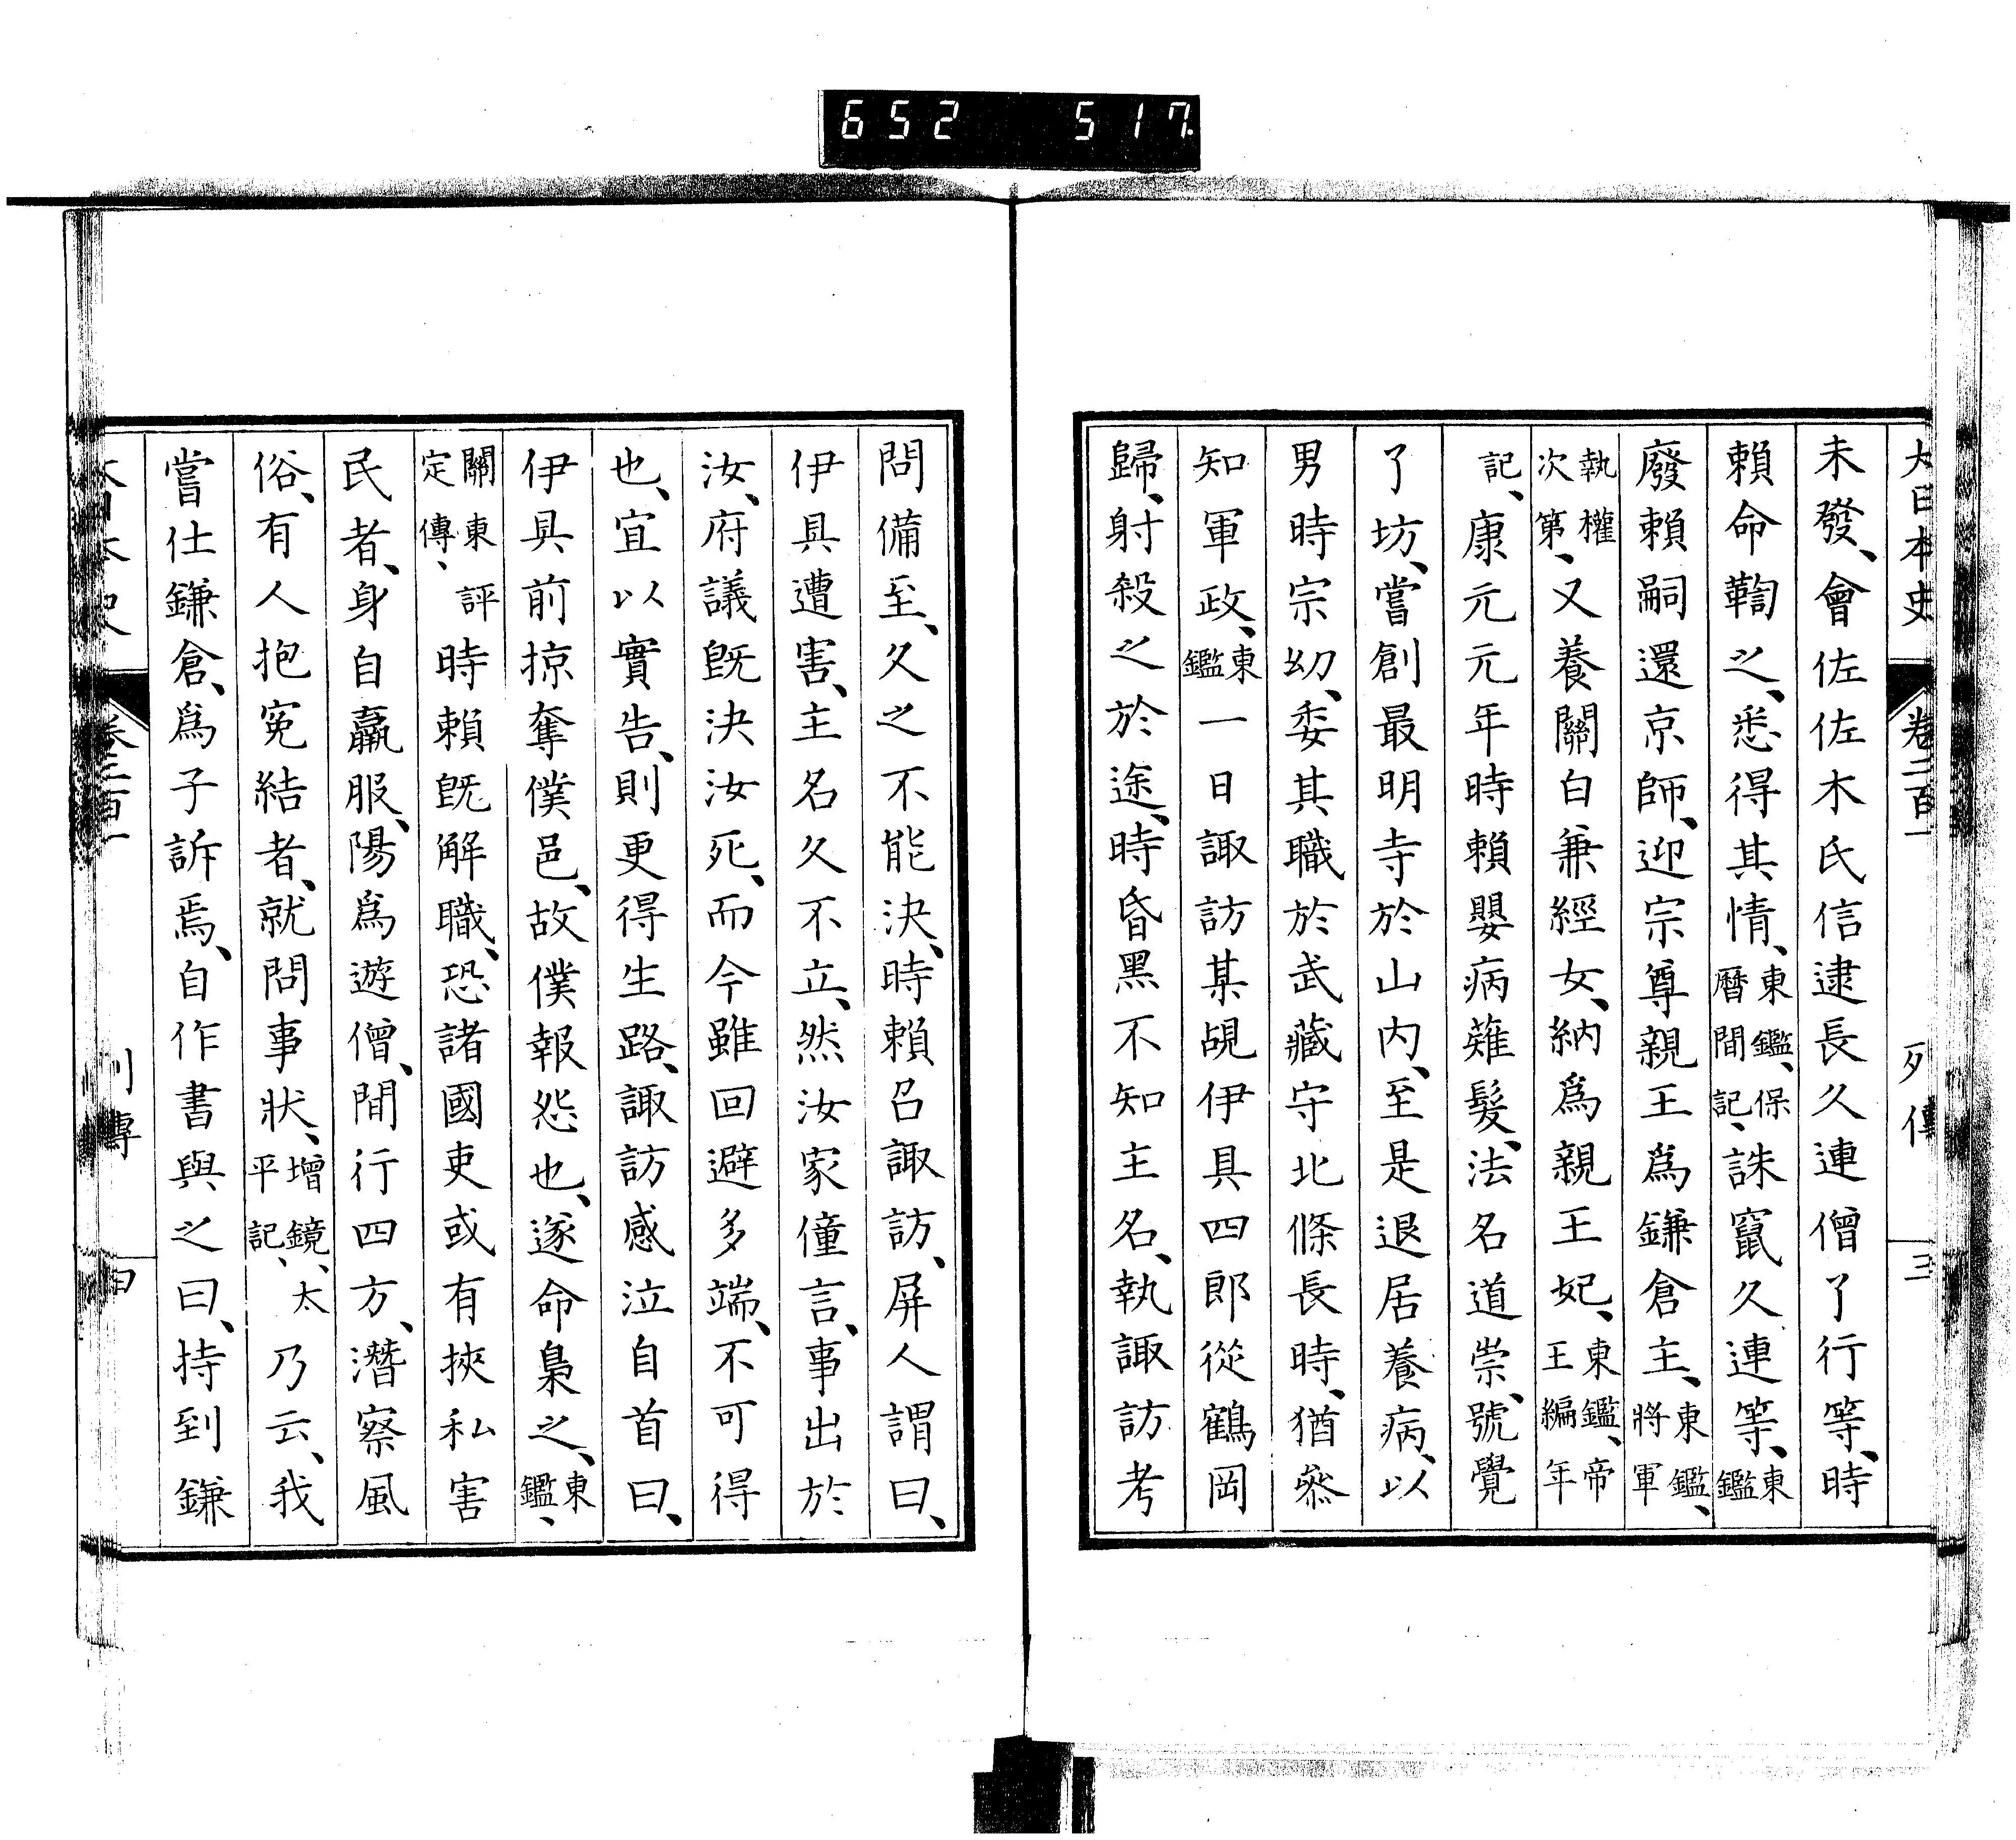 652 517
大日本史 卷二百一 列傳 三
未發、會佐佐木氏信逮長久連僧了行等、時
賴命鞫之、悉得其情、東鑑、保曆間記、誅竄久連等、東鑑
廢賴嗣還京師、迎宗尊親王爲鎌倉主、東鑑、將軍
執權次第、又養關白兼經女、納爲親王妃、東鑑、帝王編年
記、康元元年時賴嬰病薙髮、法名道崇、號覺
了坊、嘗創最明寺於山內、至是退居養病、以
男時宗幼、委其職於武藏守北條長時、猶參
知軍政、東鑑一日諏訪某覘伊具四郎從鶴岡
歸、射殺之於途、時昏黑不知主名、執諏訪考
問備至、久之不能決、時賴召諏訪、屏人謂曰、
伊具遭害、主名久不立、然汝家僮言、事出於
汝、府議既決汝死、而今雖回避多端、不可得
也、宜以實告、則更得生路、諏訪感泣自首曰、
伊具前掠奪僕邑、故僕報怨也、遂命梟之、東鑑、
關東評定傳、時賴既解職、恐諸國吏或有挾私害
民者、身自羸服、陽爲遊僧、間行四方、潛察風
俗、有人抱冤結者、就問事狀、增鏡、太平記、乃云、我
嘗仕鎌倉、爲子訴焉、自作書與之曰、持到鎌
卷二百一 列傳 四